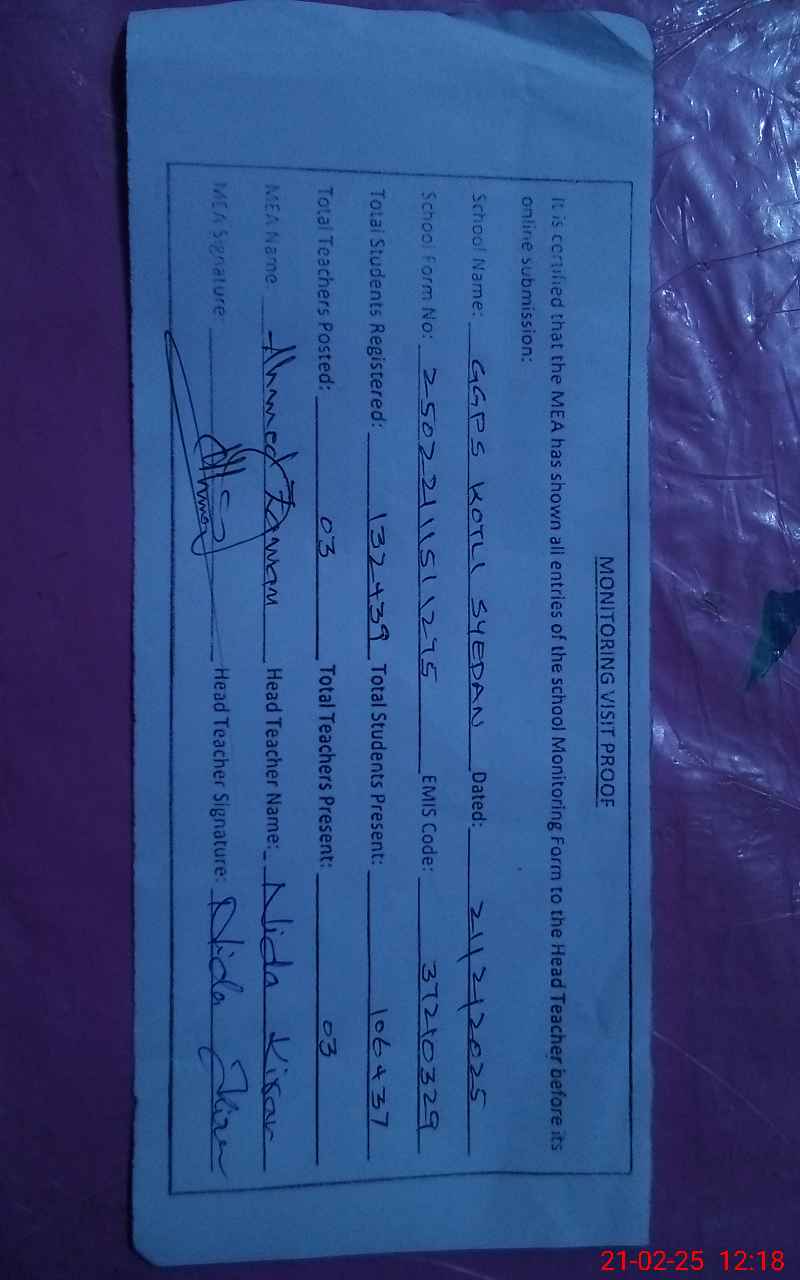 MONITORING VISIT PROOF
It is certified that the MEA has shown all entries of the school Monitoring Form to the Head Teacher before its
online submission:
School Name: GGPS KOTLI SYEDAN Dated: 21/2/2025
School Form No: 2502211511295 EMIS Code: 37210329
Total Students Registered: 132+39 Total Students Present: 106+37
Total Teachers Posted: 03 Total Teachers Present: 03
MEA Name: Ahmed Head Teacher Name: Nida Kiran
MEA Signature: Head Teacher Signature: Nida Kiran
21-02-25 12:18